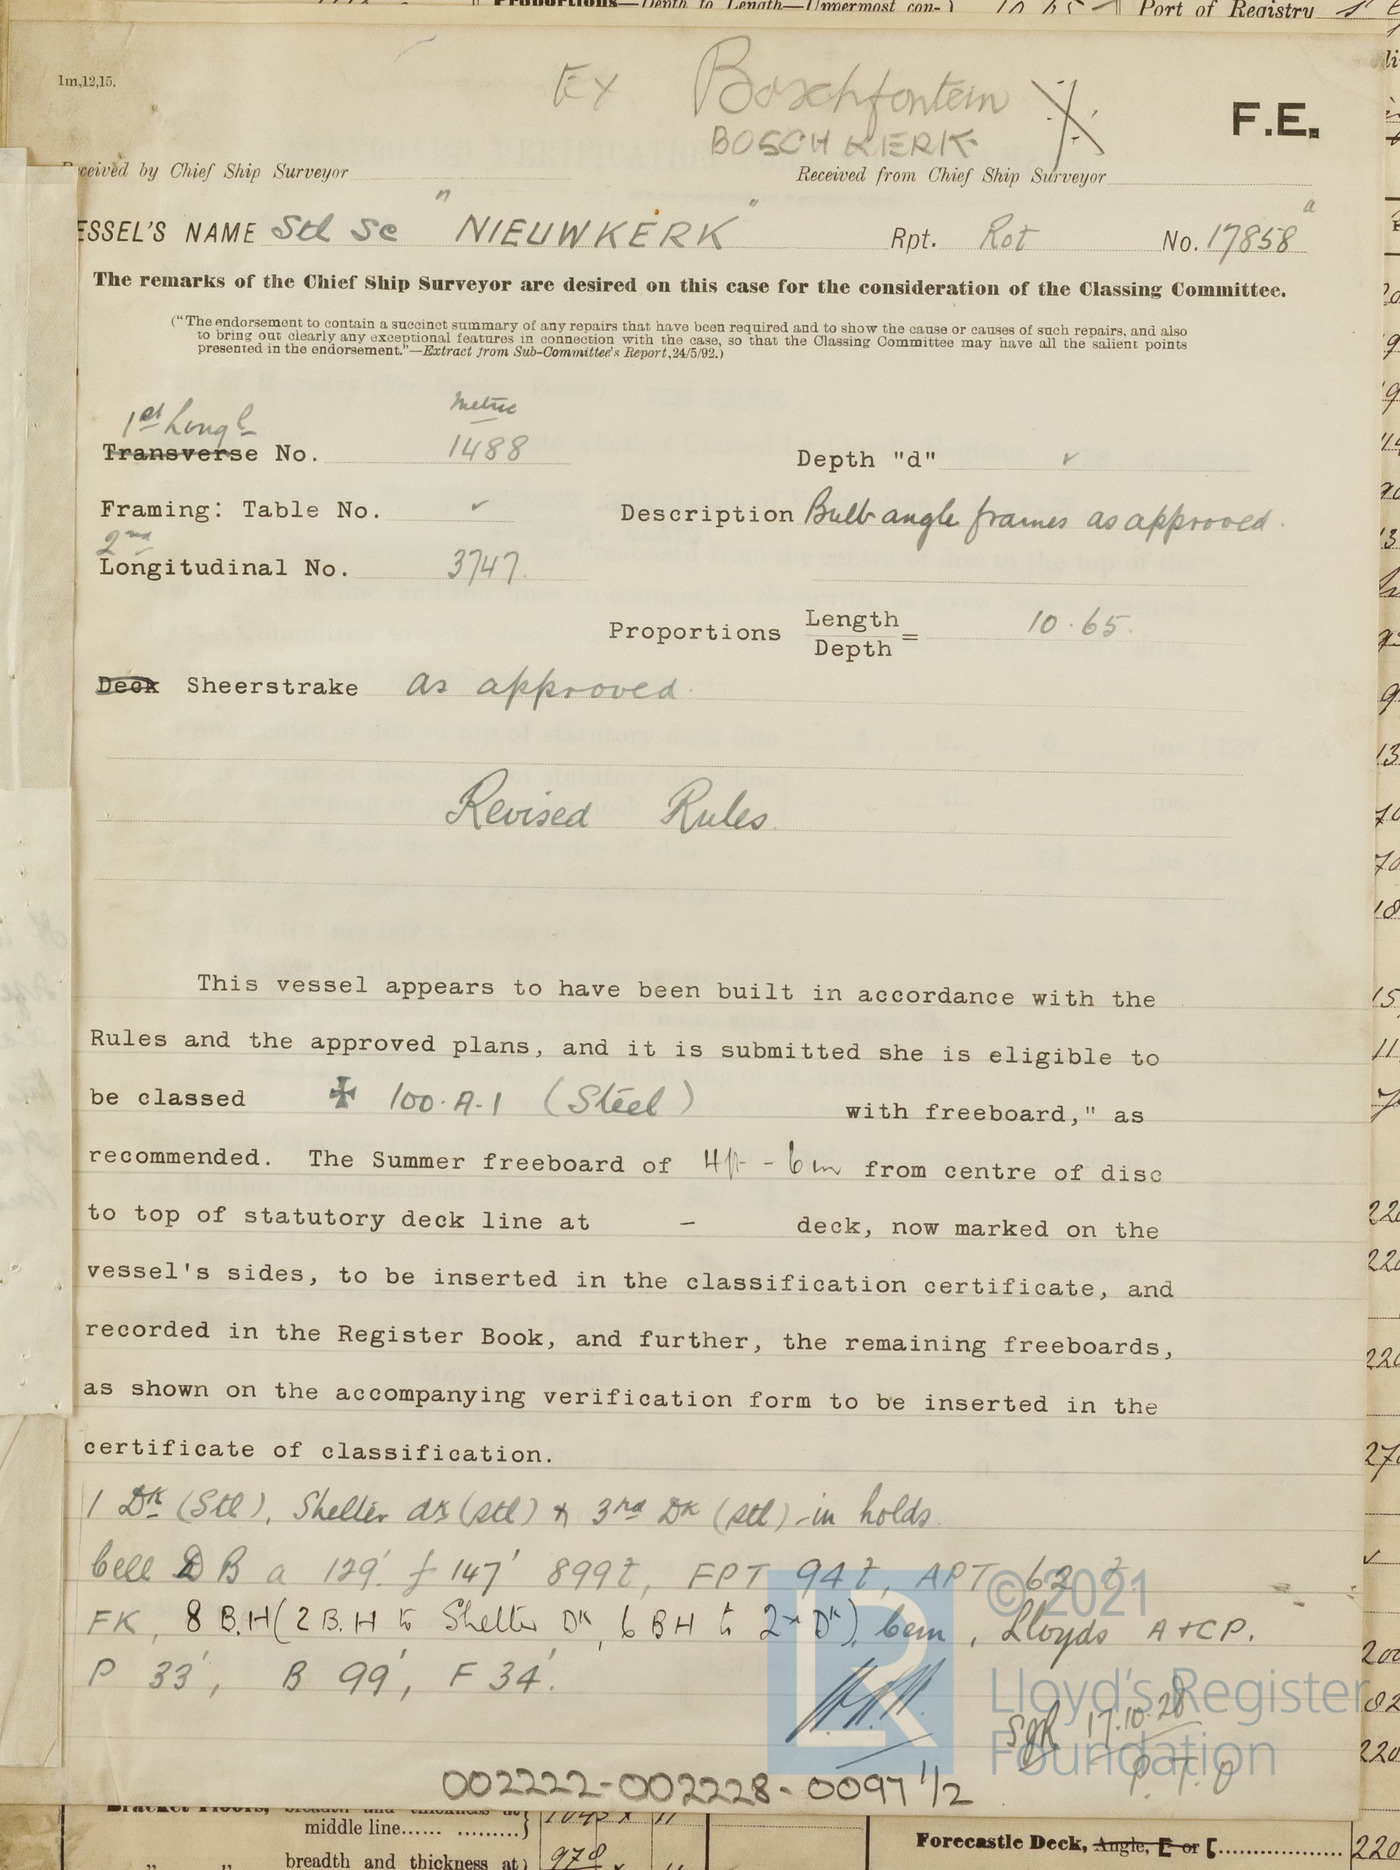 Proportions—Depth to Length—Uppermost con- 10.65 Port of Registry
1m,12,15.
Ex Boschfontein
BOSCH KERK
F.E.
Received by Chief Ship Surveyor Received from Chief Ship Surveyor
ESSEL'S NAME Stl Sc "NIEUWKERK" Rpt. Rot No. 17858 a
The remarks of the Chief Ship Surveyor are desired on this case for the consideration of the Classing Committee.
("The endorsement to contain a succinct summary of any repairs that have been required and to show the cause or causes of such repairs, and also
to bring out clearly any exceptional features in connection with the case, so that the Classing Committee may have all the salient points
presented in the endorsement."—Extract from Sub-Committee's Report, 24/5/92.)
1st Longl Metric
Transverse No. 1488 Depth "d" ✓
Framing: Table No. ✓ Description Bulb angle frames as approved.
2nd
Longitudinal No. 3747.
Proportions Length
Depth = 10.65.
Deck Sheerstrake as approved.
Revised Rules.
This vessel appears to have been built in accordance with the
Rules and the approved plans, and it is submitted she is eligible to
be classed ✠ 100.A.1 (Steel) with freeboard," as
recommended. The Summer freeboard of 4ft - 6in from centre of disc
to top of statutory deck line at - deck, now marked on the
vessel's sides, to be inserted in the classification certificate, and
recorded in the Register Book, and further, the remaining freeboards,
as shown on the accompanying verification form to be inserted in the
certificate of classification.
1 Dk (Stl), Shelter dk (stl) & 3rd Dk (stl) in holds.
Cell D B a 129' f 147' 899t, FPT 94t, APT 62 t.
FK, 8 B.H (2 B.H to Shelter Dk, 6 BH to 2nd Dk), Cem, Lloyds A & C P.
P 33', B 99', F 34'.
17.10.28
P.T.O
© 2021
LR
Lloyd's Register
Foundation
002222-002228-0097 1/2
Bracket Floors, breadth and thickness at
middle line...... 1045 x 11
" " breadth and thickness at 970
Forecastle Deck, Angle, E or [ 220